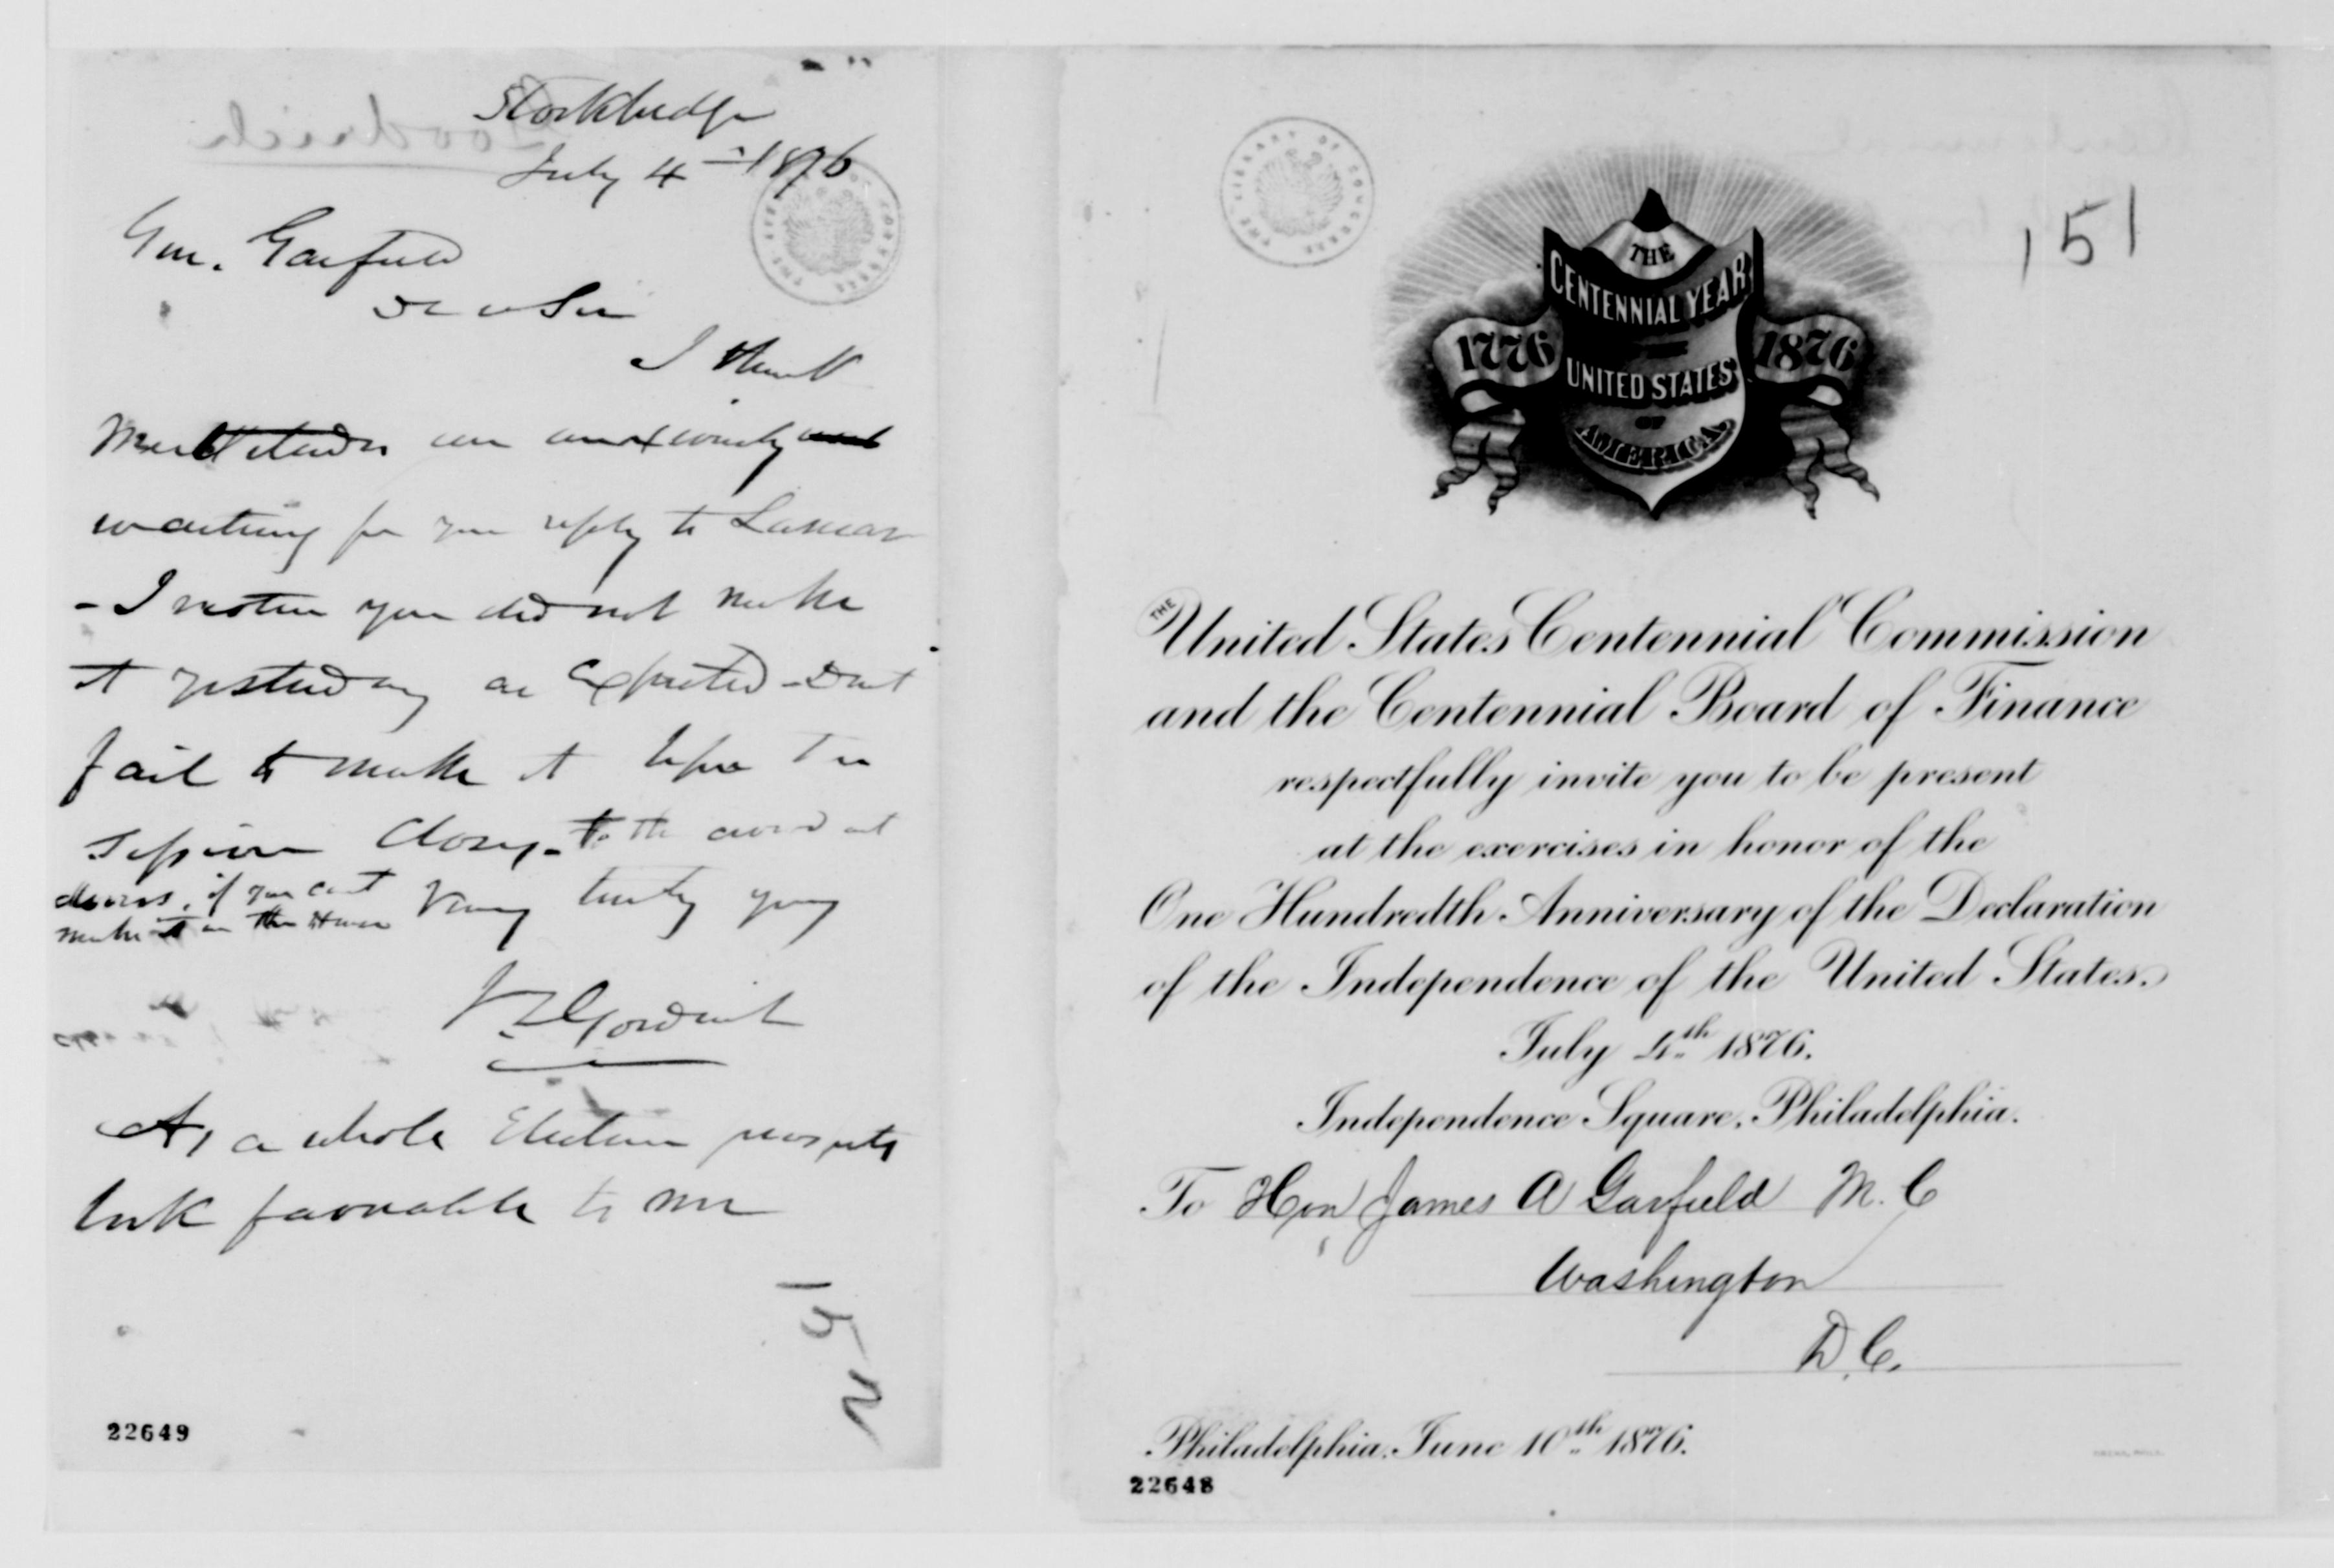 Stockbridge
July 4th 1876
Gen. Garfield
Dear Sir
I think
Multitudes are anxiously
waiting for your reply to Lamar
- I notice you did not make
it yesterday as expected - Dont
fail to make it before the
Session closes - To the crowd at
doors, if you cant
make it in the House
Very truly yours
Goodrich
As a whole Election prospects
look favorable to me
152
22649
THE LIBRARY OF CONGRESS
THE LIBRARY OF CONGRESS
151
THE
CENTENNIAL YEAR
OF THE
1776 UNITED STATES 1876
OF
AMERICA
THE United States Centennial Commission
and the Centennial Board of Finance
respectfully invite you to be present
at the exercises in honor of the
One Hundredth Anniversary of the Declaration
of the Independence of the United States.
July 4th 1876.
Independence Square, Philadelphia.
To Hon James A Garfield M. C
Washington
D. C.
Philadelphia, June 10th 1876.
22648